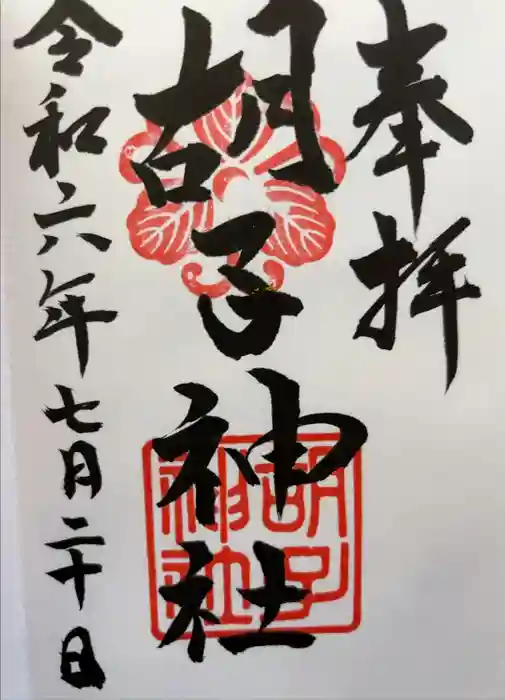 奉拝
胡子神社
胡子神社
令和六年七月二十日